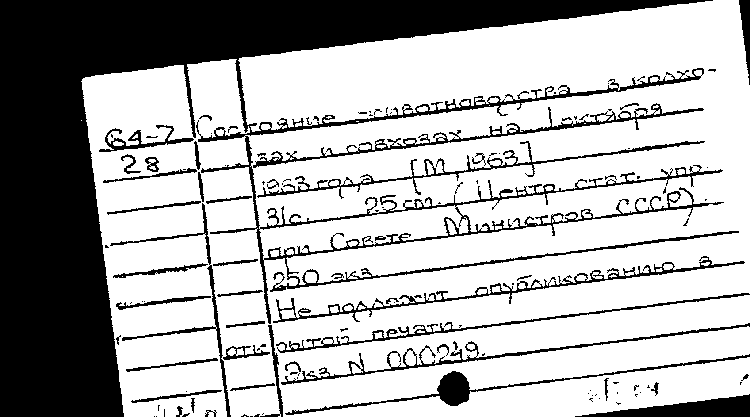 64-7 Состояние животноводства в колхо-
28 зах и совхозах на 1 октября
1963 года [М, 1963]
31с. 25 см. (Центр. стат. упр.
при Совете Министров СССР)
250 экз
Не подлежит опубликованию в
открытой печати.
Экз N 000249.